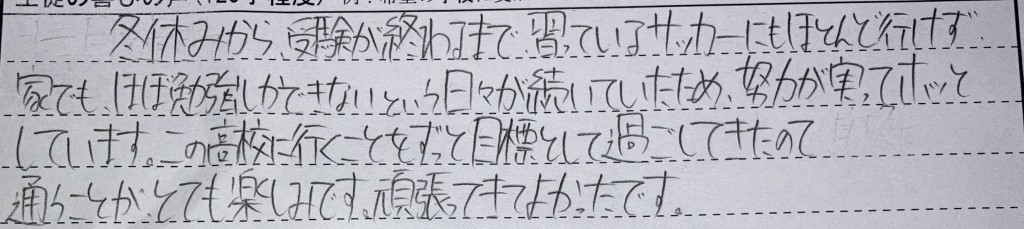 冬休みから、受験が終わるまで、習っているサッカーにもほとんど行けず、
家でも、ほぼ勉強しかできないという日々が続いていたため、努力が実ってホッと
しています。この高校に行くことをずっと目標として過ごしてきたので
通うことが、とても楽しみです。頑張ってきてよかったです。